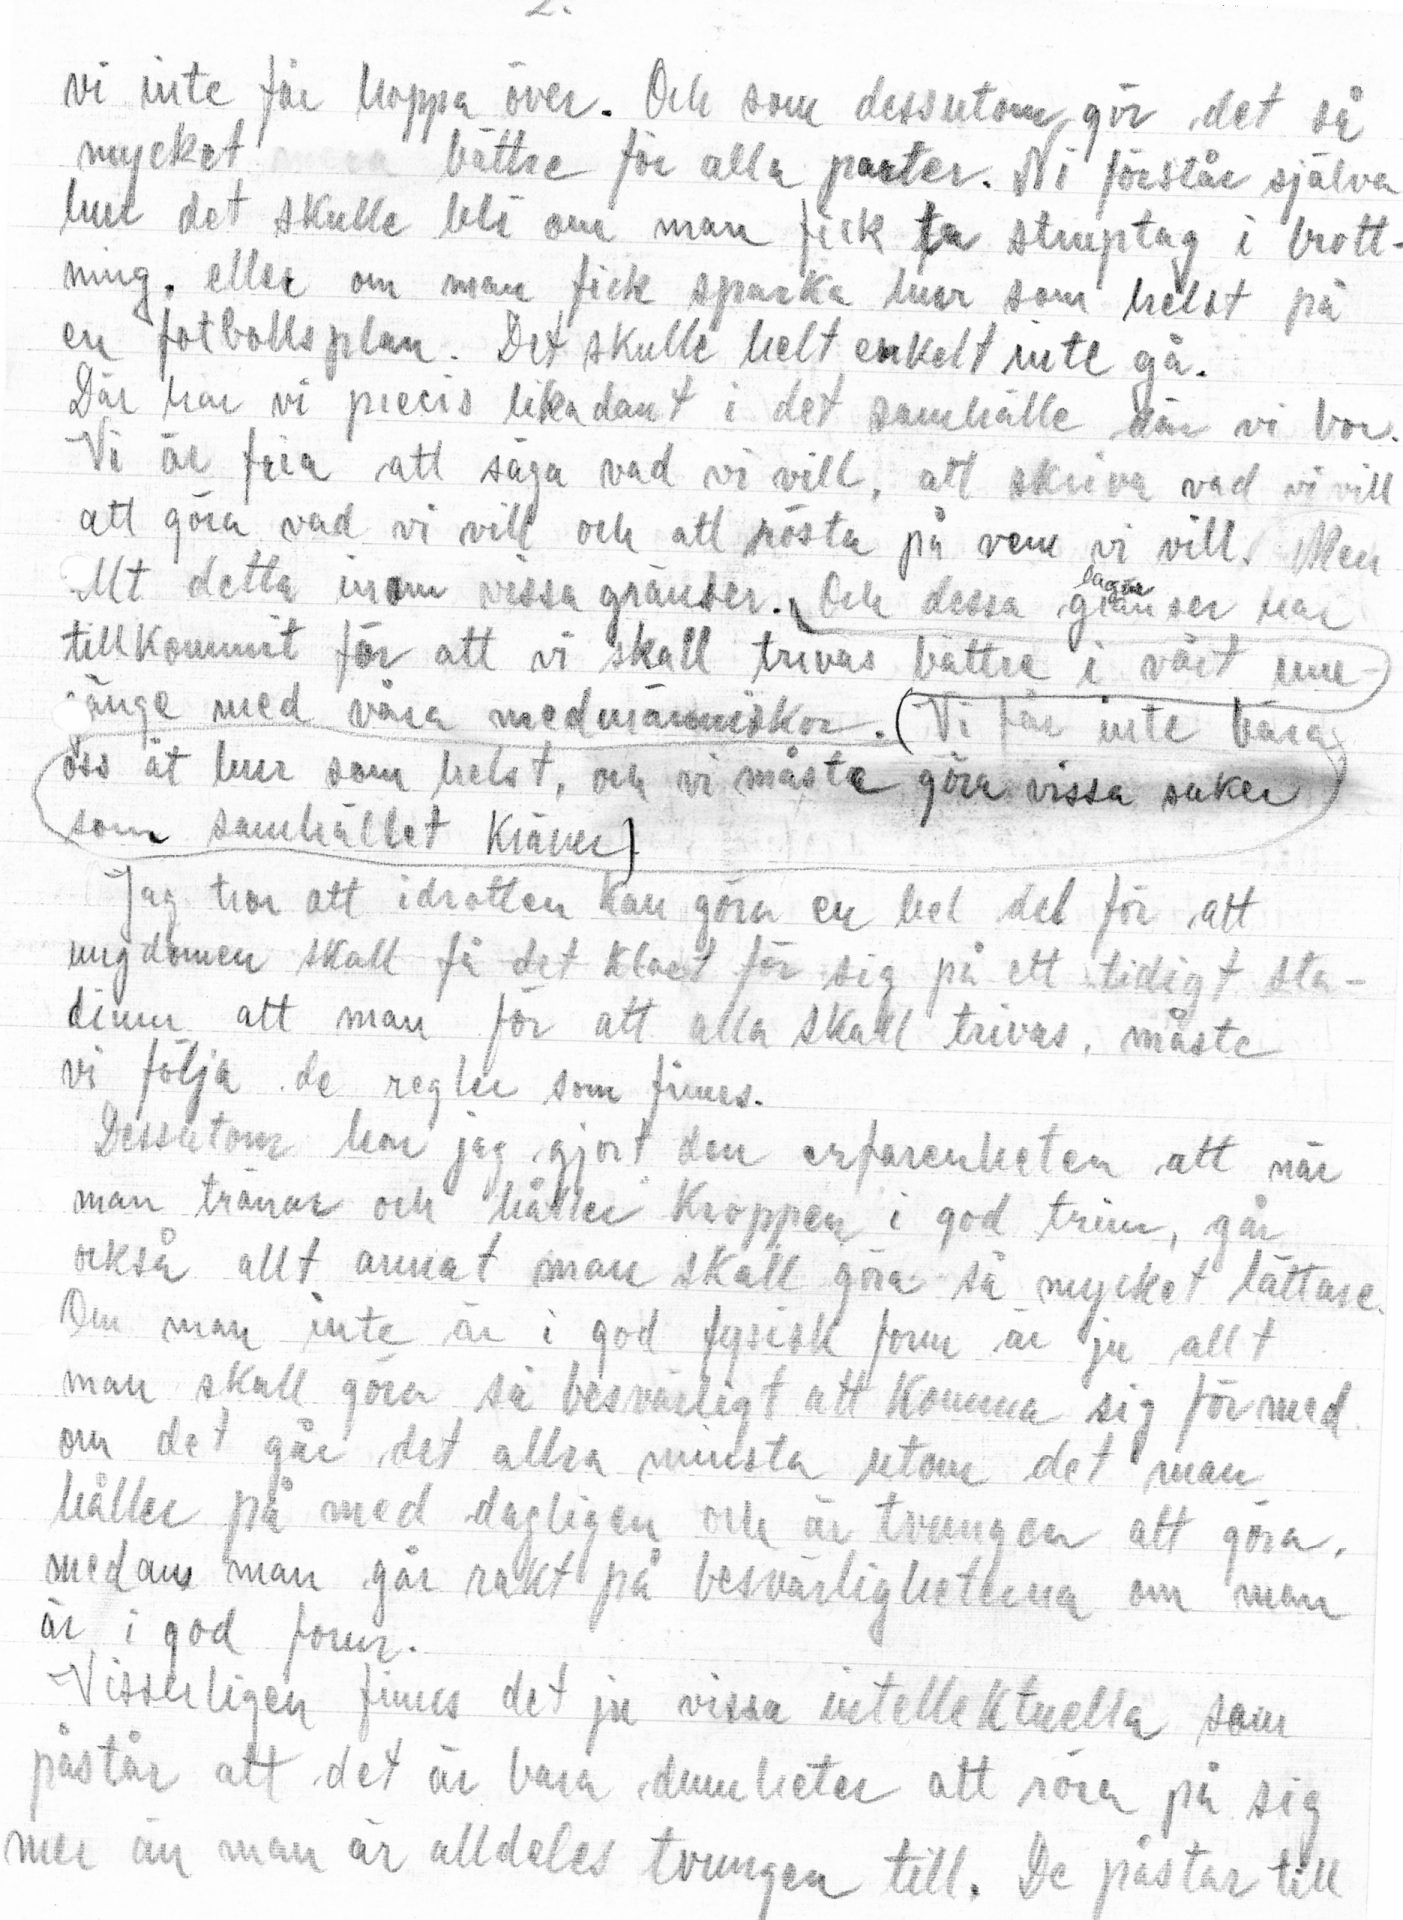 2.
vi inte får hoppa över. Och som dessutom gör det så
mycket mera bättre för alla parter. Ni förstår själva
hur det skulle bli om man fick ta struptag i brott-
ning. eller om man fick sparka hur som helst på
en fotbollsplan. Det skulle helt enkelt inte gå.
Där har vi precis likadant i det samhälle där vi bor.
Vi är fria att säga vad vi vill, att skriva vad vi vill
att göra vad vi vill och att rösta på vem vi vill. Men
Allt detta inom vissa gränser. Och dessa gränser har
lagar
tillkommit för att vi skall trivas bättre i vårt um-
gänge med våra medmänniskor. (Vi får inte bära
oss åt hur som helst, och vi måste göra vissa saker
som samhället kräver)
Jag tror att idrotten kan göra en hel del för att
ungdomen skall få det klart för sig på ett tidigt sta-
dium att man för att alla skall trivas, måste
vi följa de regler som finns.
Dessutom har jag gjort den erfarenheten att när
man tränar och håller kroppen i god trim, går
också allt annat man skall göra så mycket lättare.
Om man inte är i god fysisk form är ju allt
man skall göra så besvärligt att komma sig för med
om det går det allra minsta utom det man
håller på med dagligen och är tvungen att göra,
medan man går rakt på besvärligheterna om man
är i god form.
Visserligen finns det ju vissa intellektuella som
påstår att det är bara dumheter att röra på sig
mer än man är alldeles tvungen till. De påstar till